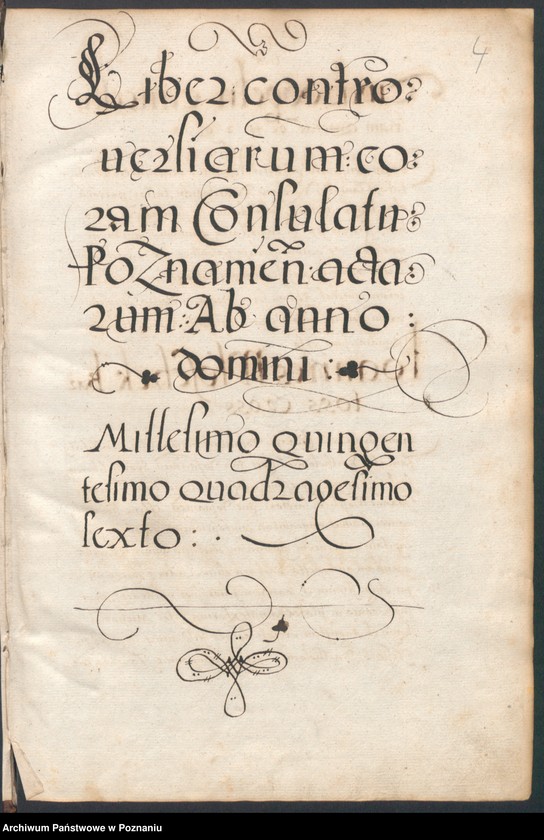 4
Liber contro:
uersiarum: co:
ram Consulatu:
PoZnameñ: acta:
rum: Ab anno:
domini:
Millesimo quingen
tesimo quadragesimo
sexto:
Archiwum Państwowe w Poznaniu